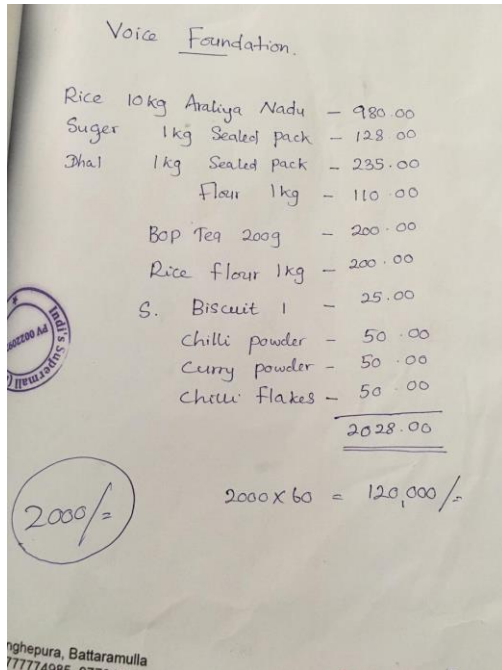 Voice Foundation.
Rice 10kg Araliya Nadu - 980.00
Suger 1kg Sealed pack - 128.00
Dhal 1kg Sealed pack - 235.00
Flour 1kg - 110.00
Bop Tea 200g - 200.00
Rice flour 1kg - 200.00
S. Biscuit 1 - 25.00
Chilli powder - 50.00
Curry powder - 50.00
Chilli flakes - 50.00
2028.00
2000 x 60 = 120,000/=
2000/=
Indi's Supermall
nghepura, Battaramulla